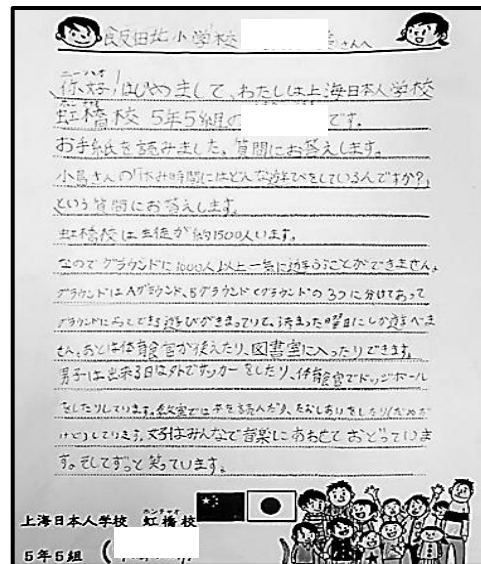 飯田北小学校 さんへ
ニーハオ
你好!はじめまして、わたしは上海日本人学校
虹橋校 5年5組の です。
お手紙を読みました。質問にお答えします。
小島さんの「休み時間にはどんな遊びをしているんですか?」
という質問にお答えします。
虹橋校は生徒が約1500人います。
なのでグラウンドに1000人以上一気に遊ぶことができません。
グラウンドはAグラウンド、BグラウンドCグラウンドの3つに分けてあって
グラウンドによってできる遊びがきまっていて、決まった曜日にしか遊べま
せん。あとは体育館が使えたり、図書室に入ったりできます。
男子は出来る日は外でサッカーをしたり、体育館でドッジボール
をしたりしています。教室では本を読んだり、
けど)しています。女子はみんなで音楽にあわせておどっていま
す。そしてずっと笑っています。
上海日本人学校 虹橋校
ホンチャオ
5年5組 (